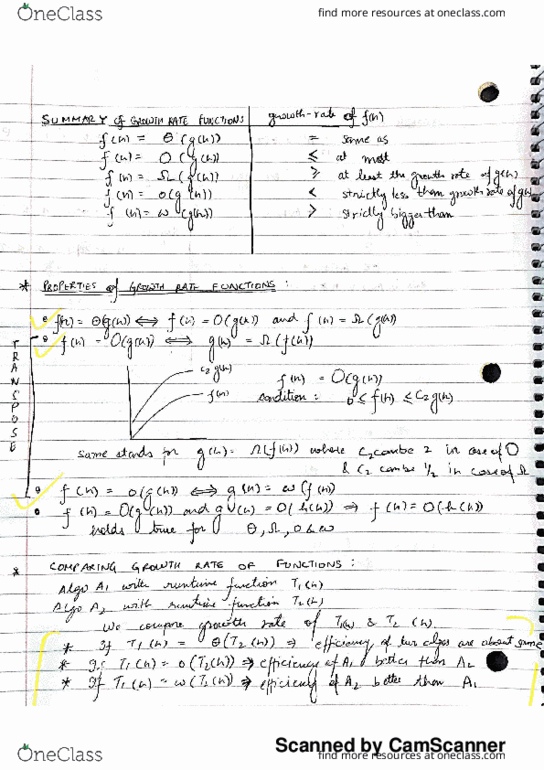 OneClass
find more resources at oneclass.com
SUMMARY of GROWTH RATE FUNCTIONS
growth-rate of f(n)
f(n) = Θ(g(n))
= same as
f(n) = O(g(n))
≤ at most
f(n) = Ω(g(n))
≥ at least the growth rate of g(n)
f(n) = o(g(n))
< strictly less than growth rate of g(n)
f(n) = ω(g(n))
> strictly bigger than
* PROPERTIES of GROWTH RATE FUNCTIONS:
• f(n) = Θ(g(n)) ⟺ f(n) = O(g(n)) and f(n) = Ω(g(n))
• f(n) = O(g(n)) ⟺ g(n) = Ω(f(n))
TRANSPOSE
c₂ g(n)
f(n)
f(n) = O(g(n))
condition: 0 ≤ f(n) ≤ c₂g(n)
Same stands for g(n) = Ω(f(n)) where c₂ can be 2 in case of O
& c₂ can be 1/2 in case of Ω
• f(n) = o(g(n)) ⟺ g(n) = ω(f(n))
• f(n) = O(g(n)) and g(n) = O(h(n)) ⟹ f(n) = O(h(n))
holds true for Θ, Ω, o & ω
* COMPARING GROWTH RATE OF FUNCTIONS:
Algo A1 with runtime function T₁(n)
Algo A2 with runtime function T₂(n)
We compare growth rate of T₁(n) & T₂(n).
* If T₁(n) = Θ(T₂(n)) ⟹ efficiency of two algos are about same
* If T₁(n) = o(T₂(n)) ⟹ efficiency of A1 better than A2
* If T₁(n) = ω(T₂(n)) ⟹ efficiency of A2 better than A1
Scanned by CamScanner
OneClass
find more resources at oneclass.com